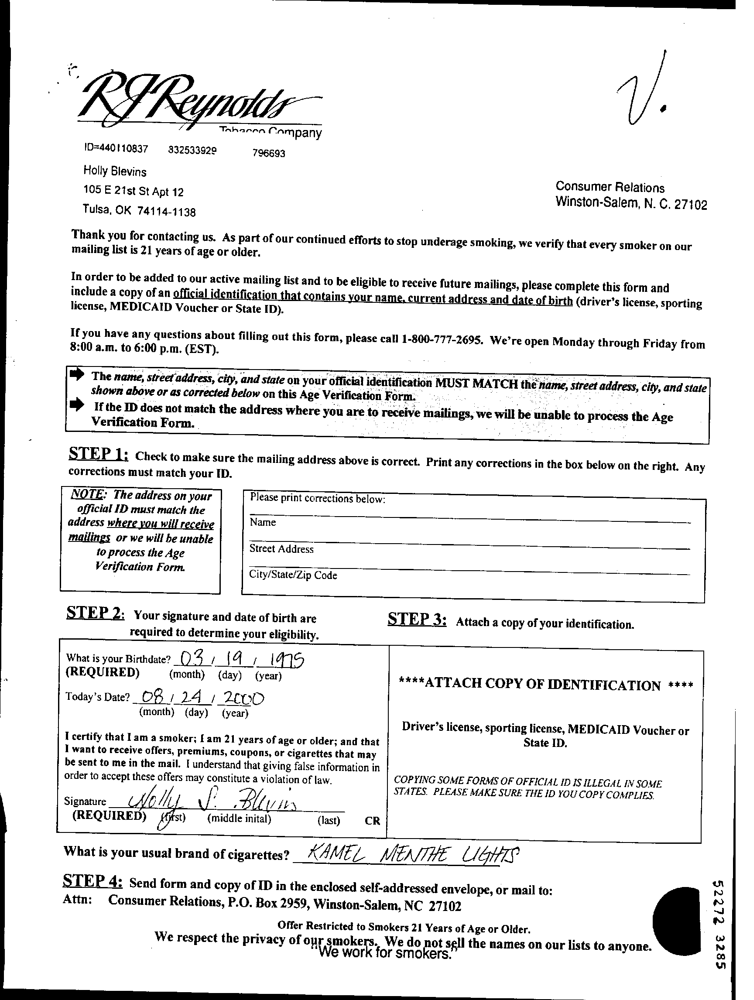 RJReynolds
Tobacco Company
V.
ID=440110837 832533929 796693
Holly Blevins
105 E 21st St Apt 12
Tulsa, OK 74114-1138
Consumer Relations
Winston-Salem, N. C. 27102
Thank you for contacting us. As part of our continued efforts to stop underage smoking, we verify that every smoker on our
mailing list is 21 years of age or older.
In order to be added to our active mailing list and to be eligible to receive future mailings, please complete this form and
include a copy of an official identification that contains your name, current address and date of birth (driver's license, sporting
license, MEDICAID Voucher or State ID).
If you have any questions about filling out this form, please call 1-800-777-2695. We're open Monday through Friday from
8:00 a.m. to 6:00 p.m. (EST).
The name, street address, city, and state on your official identification MUST MATCH the name, street address, city, and state
shown above or as corrected below on this Age Verification Form.
If the ID does not match the address where you are to receive mailings, we will be unable to process the Age
Verification Form.
STEP 1: Check to make sure the mailing address above is correct. Print any corrections in the box below on the right. Any
corrections must match your ID.
NOTE: The address on your
official ID must match the
address where you will receive
mailings or we will be unable
to process the Age
Verification Form.
Please print corrections below:
Name
Street Address
City/State/Zip Code
STEP 2: Your signature and date of birth are
required to determine your eligibility.
What is your Birthdate? 03 / 19 / 1975
(REQUIRED) (month) (day) (year)
Today's Date? 08 / 24 / 2000
(month) (day) (year)
I certify that I am a smoker; I am 21 years of age or older; and that
I want to receive offers, premiums, coupons, or cigarettes that may
be sent to me in the mail. I understand that giving false information in
order to accept these offers may constitute a violation of law.
Signature Holly J. Blevins
(REQUIRED) (first) (middle inital) (last) CR
STEP 3: Attach a copy of your identification.
****ATTACH COPY OF IDENTIFICATION ****
Driver's license, sporting license, MEDICAID Voucher or
State ID.
COPYING SOME FORMS OF OFFICIAL ID IS ILLEGAL IN SOME
STATES. PLEASE MAKE SURE THE ID YOU COPY COMPLIES.
What is your usual brand of cigarettes? KAMEL MENTHE LIGHTS
STEP 4: Send form and copy of ID in the enclosed self-addressed envelope, or mail to:
Attn: Consumer Relations, P.O. Box 2959, Winston-Salem, NC 27102
Offer Restricted to Smokers 21 Years of Age or Older.
We respect the privacy of our smokers. We do not sell the names on our lists to anyone.
"We work for smokers."
52272 3285